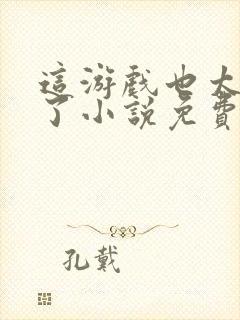 這游戲也太
了小說免費
孔戴